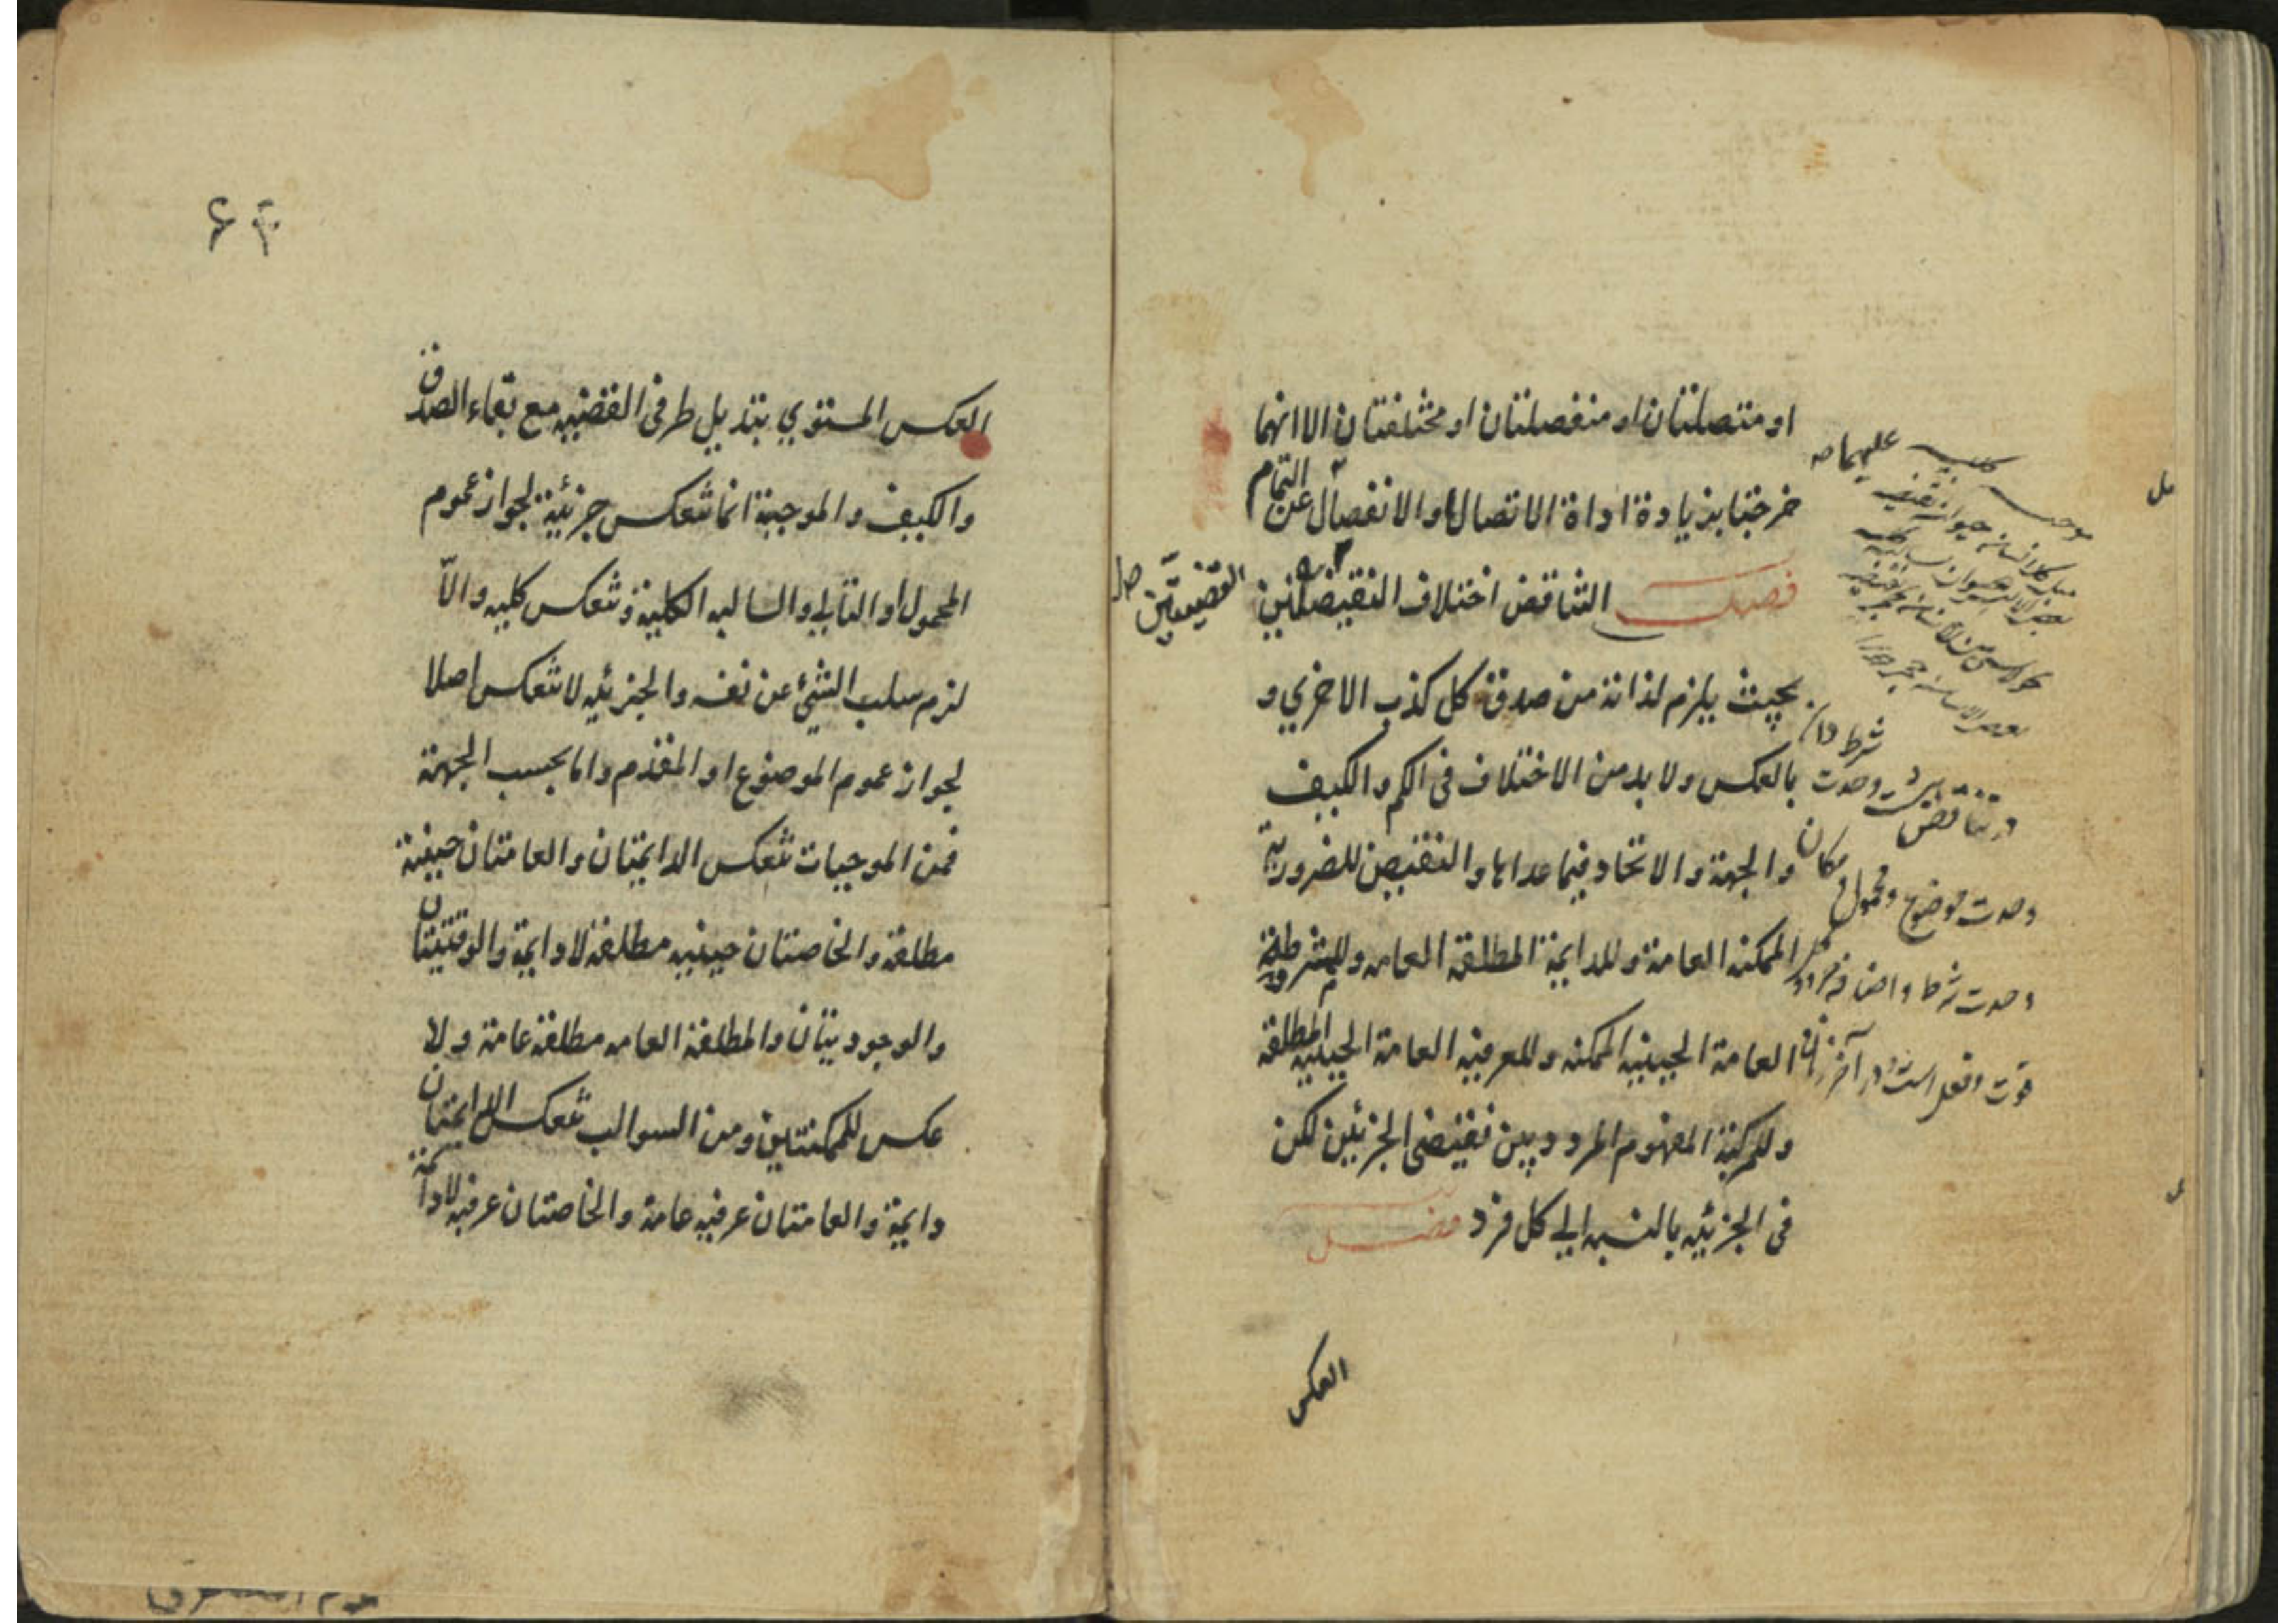 او متصلتان او منفصلتان او مختلفتان الا انهما
خرجتا بزيادة اداة الاتصال او الانفصال عن التمام
فصل التناقض اختلاف النقيضتين
القضيتين
بحيث يلزم لذاته من صدق كل كذب الاخري و
بالعكس ولا بد من الاختلاف في الكم والكيف
والجهة والاتحاد فيما عداها والنقيض للضرورية
الممكنه العامة وللدايمة المطلقة العامه وللمشروطة
العامة الحينيه الممكنه وللعرفيه العامة الحينيه المطلقة
وللمركبة المفهوم المردد بين نقيضي الجزئين لكن
في الجزئيه بالنسبه الي كل فرد فصل
العكس
در تناقض هشت وحدت شرط دان
وحدت موضوع و محمول و مكان
وحدت شرط و اضافه جزو و كل
قوت و فعل است در آخر زمان
۶۳
العكس المستوي تبديل طرفي القضيه مع بقاء الصدق
والكيف والموجبة انما تنعكس جزئية لجواز عموم
المحمول او التالي والسالبه الكلية تنعكس كليه والا
لزم سلب الشئ عن نفسه والجزئيه لا تنعكس اصلا
لجواز عموم الموضوع او المقدم واما بحسب الجهة
فمن الموجبات تنعكس الدايمتان والعامتان حينية
مطلقة والخاصتان حينيه مطلقة لادايمة والوقتيتان
والوجوديتان والمطلقة العامه مطلقة عامة ولا
عكس للممكنتين ومن السوالب تنعكس الدايمتان
دايمة والعامتان عرفيه عامة والخاصتان عرفيه لادائمة